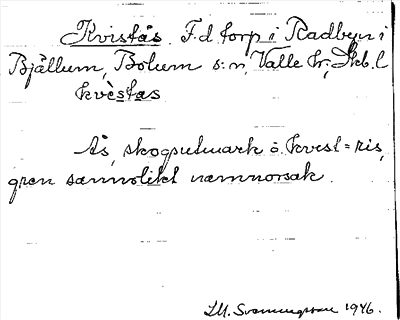 Kvistås. F.d torp i Radbyn i
Bjällum, Bolum s:n, Valle hr, Skb. l
kvèstas
Ås, skogsutmark o. kvest = ris,
gren sannolikt namnorsak.
1946.